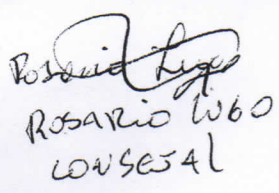 Rosario Lugo
ROSARIO LUGO
CONSEJAL